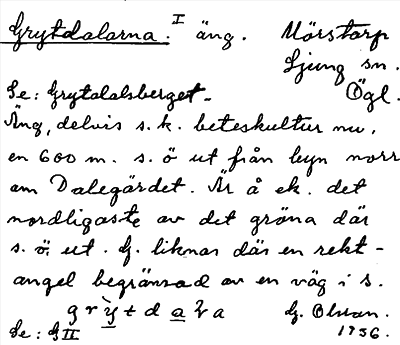 Grytdalarna. I äng. Mörstorp
Ljung sn.
Se: Grytdalsberget. Ögl.
Äng, delvis s.k. beteskultur nu,
en 600 m. s.ö ut från byn norr
om Dalegärdet. Är å ek. det
nordligaste av det gröna där
s.ö. ut. G. liknar där en rekt-
angel begränsad av en väg i s.
grytdaɫa G. Olsson.
Se: G II 1936.